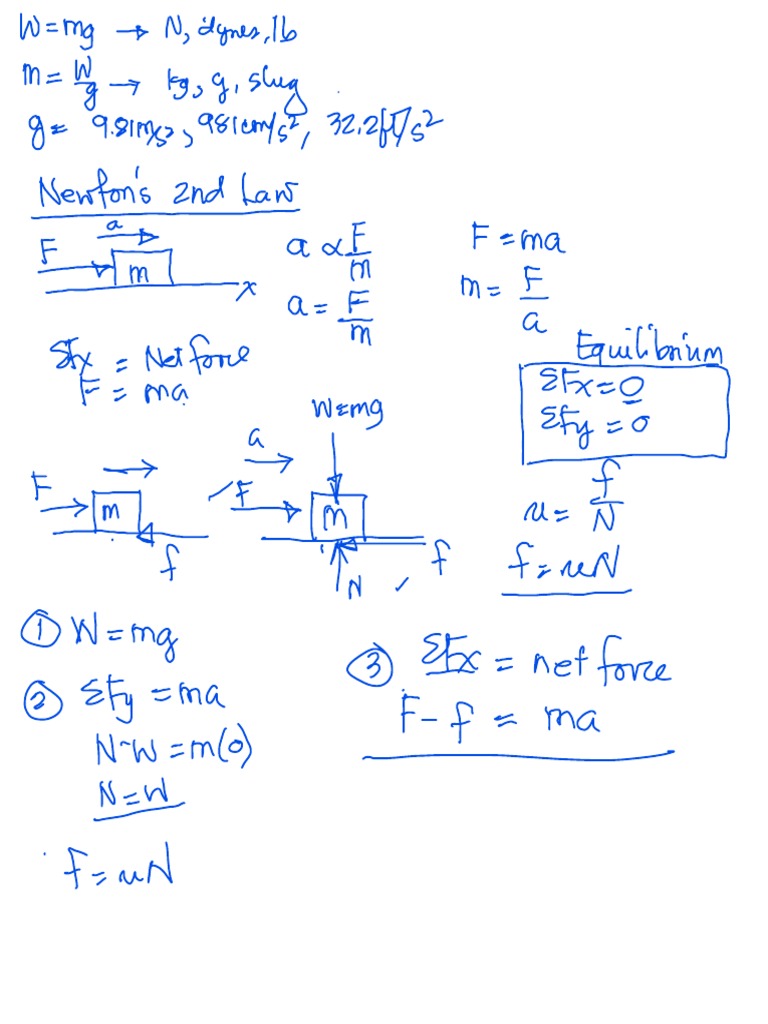 W = mg → N, dynes, lb
m = W/g → kg, g, slug
g = 9.81m/s², 981cm/s², 32.2ft/s²
Newton's 2nd Law
a
F
m
x
a ∝ F/m
a = F/m
F = ma
m = F/a
ΣFx = Net force
F = ma
Equilibrium
ΣFx = 0
ΣFy = 0
F
m
f
a
W = mg
F
m
f
N
u = f/N
f = uN
① W = mg
② ΣFy = ma
N-W = m(0)
N = W
F = uN
③ ΣFx = net force
F - f = ma